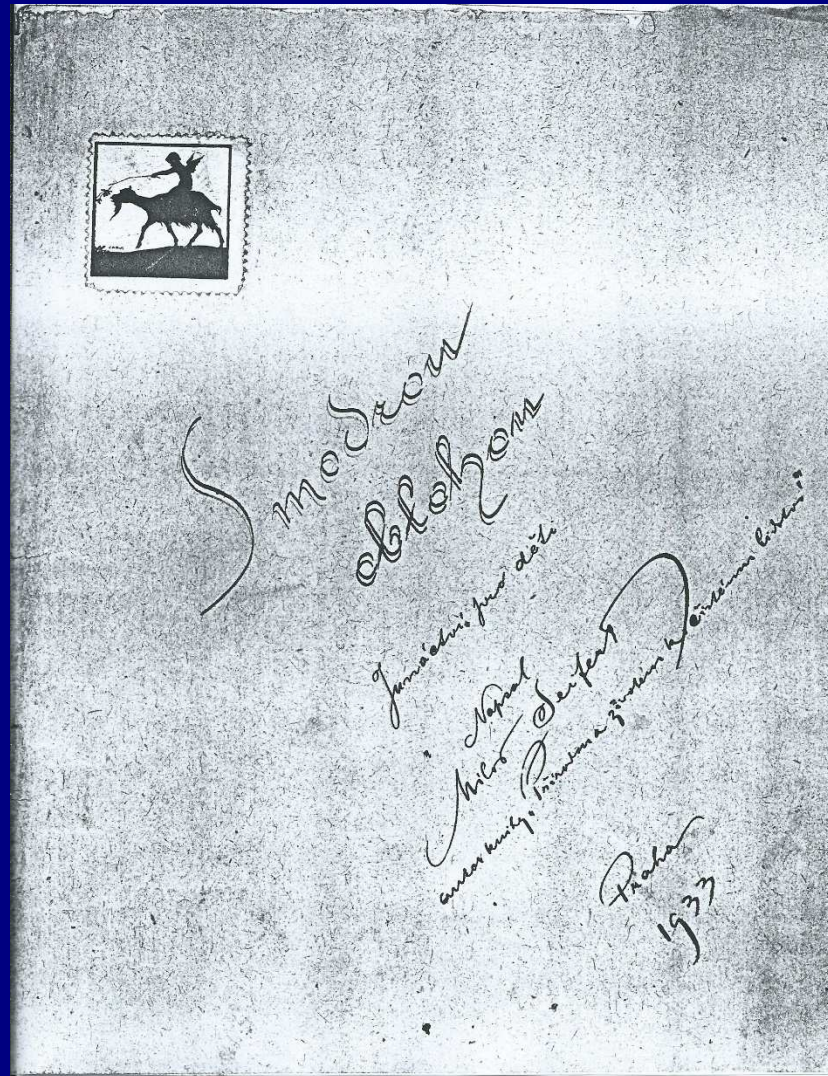 S modrou
oblohou
Junáctví pro děti
Napsal
Miloš Seifert
autor knihy „Přírodou a životem k čistému lidství"
Praha
1933